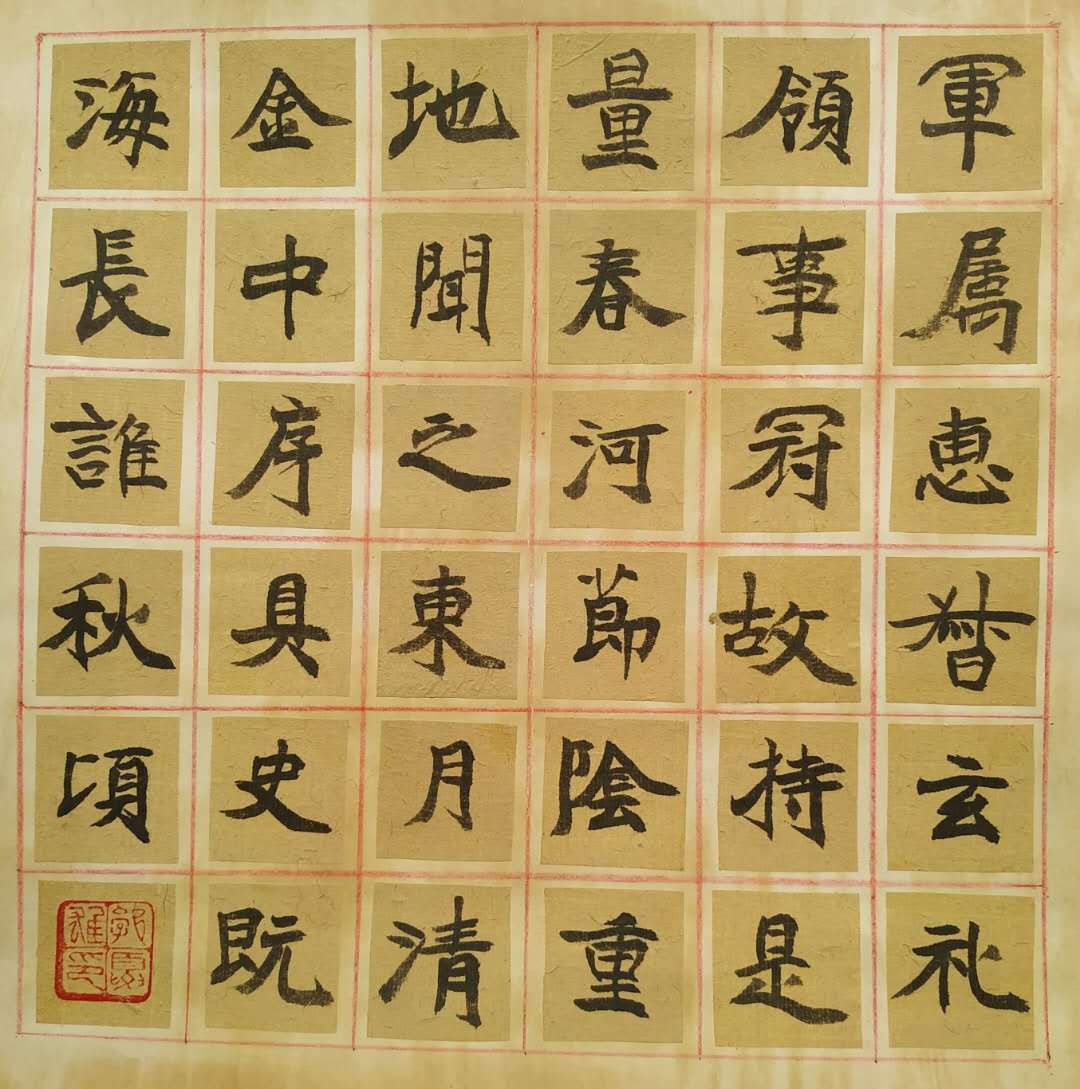 軍属恵玄礼
領事冠故持是
量春河莭陰重
地聞之東月清
金中序具史既
海長誰秋頃